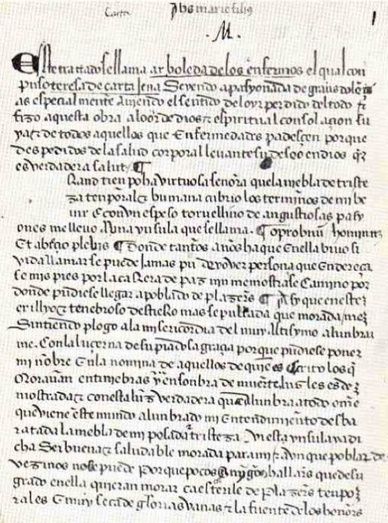 Carta
Jhs marie filij
1
.M.
Este tractado se llama arboleda de los enfermos el qual con
puso teresa de cartajena seyendo apasyonada de graues dolençi
as especialmente auiendo el sentido del oyr perdido del todo E
fizo aquesta obra a loor de dios E espiritual consolaçion su
ya E de todos aquellos que enfermedades padesçen porque
despedidos de la salud corporal leuante su deseo en dios que
es verdadera salut
Grand tienpo ha virtuosa señora que la niebla de triste
za tenporal E humana cubrio los terminos de mi be
uir E con vn espeso toruellino de angustiosas pasy
ones me lleuo a vna ynsula que se llama oprobrium hominum
Et abieçio plebis donde tantos años ha que en ella biuo si
vida llamar se puede jamas pude yo ver persona que endereça
se mis pies por la carrera de paz nin me mostrase camino por
donde pudiese llegar a poblado de plazeres Asy que en este
exillyo E tenebroso destierro mas sepultada que morada me
sintiendo plogo a la misericordia del muy altysymo alunbrar
me con la luçerna de su piadosa graçia porque pudiese poner
mi nonbre en la nomina de aquellos de quien es escrito los que
morauan en tiniebras y en sonbra de muerte luz les es de
mostrada E con esta luz verdadera que alunbra a todo ome
que viene en este mundo alunbrado mi entendimiento desba
ratada la niebla de mi pesada tristeza vi esta ynsula ya di
cha ser buena E saludable morada para mi E avnque poblar de
vezinos no se puede porque pocos o ningunos hallares que de su
grado en ella quieran morar ca esterile de plazeres tenpo
rales E muy seca de glorias vanas E la fuente de los honores